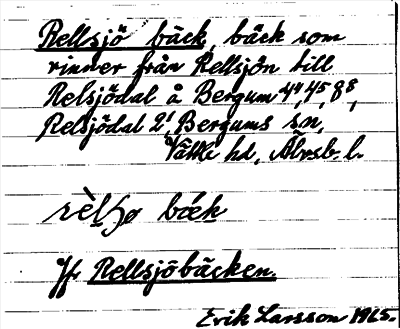 Rellsjö bäck, bäck som
rinner från Rellsjön till
Relsjödal å Bergum 4⁴, 4⁵, 8⁸,
Relsjödal 2¹, Bergums sn,
Vättle hd, Älvsb. l.
bäk
Jfr Rellsjöbäcken.
Erik Larsson 1965.